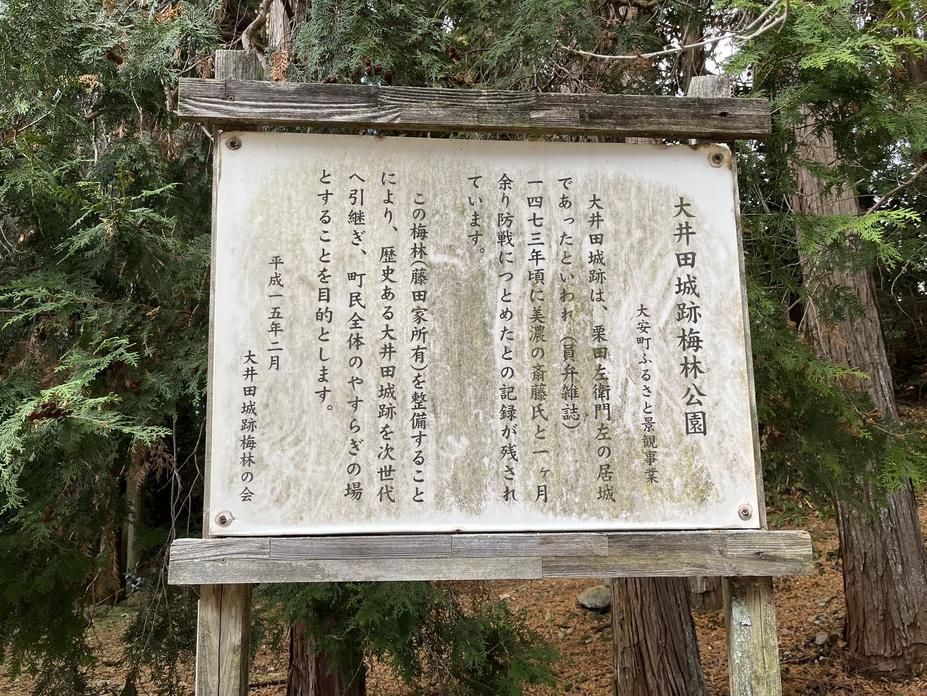 大井田城跡梅林公園
大安町ふるさと景観事業
大井田城跡は、栗田左衛門左の居城
であったといわれ(員弁雑誌)
一四七三年頃に美濃の斎藤氏と一ヶ月
余り防戦につとめたとの記録が残され
ています。
この梅林(藤田家所有)を整備すること
により、歴史ある大井田城跡を次世代
へ引継ぎ、町民全体のやすらぎの場
とすることを目的とします。
平成一五年二月
大井田城跡梅林の会